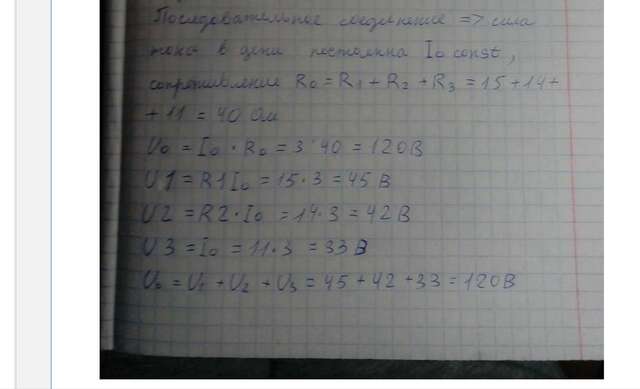 Последовательное соединение => сила
тока в цепи постоянна I₀ const,
сопротивление R₀ = R₁ + R₂ + R₃ = 15 + 14 +
+ 11 = 40 Ом
U₀ = I₀ · R₀ = 3 · 40 = 120 В
U1 = R1 I₀ = 15 · 3 = 45 В
U2 = R2 · I₀ = 14 · 3 = 42 В
U3 = I₀ = 11 · 3 = 33 В
U₀ = U₁ + U₂ + U₃ = 45 + 42 + 33 = 120 В